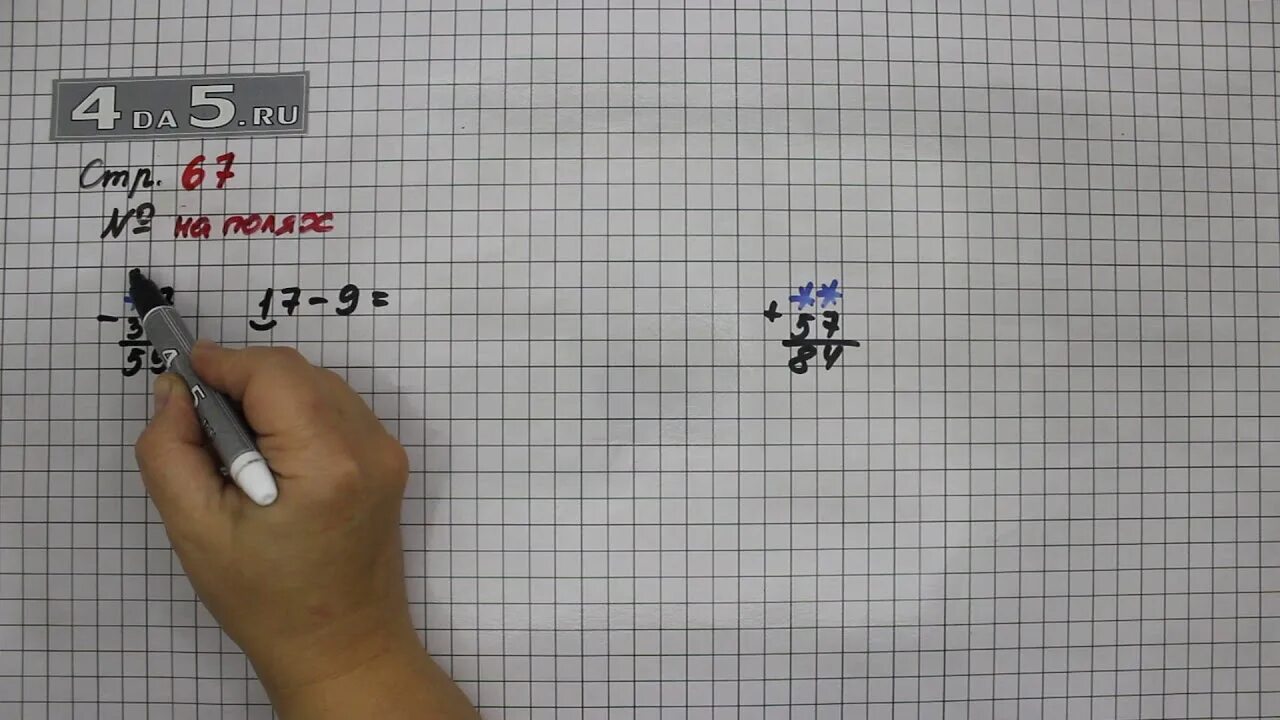 4DA5.RU
Стр. 67
№ на полях
17-9=
- 3
55
**
+ 57
84